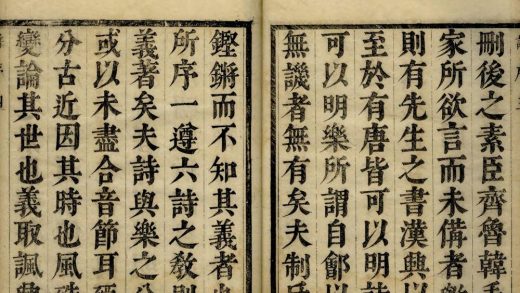 刪後之素臣齊魯韓毛
家所欲言而未備者
則有先生之書漢興以
至於有唐皆可以明詩
可以明樂所謂自鄶以
無譏者無有矣夫制氏
鏗鏘而不知其義者也
所序一遵六詩之教則
義著矣夫詩與樂之分
或以未盡合音節耳
分古近因其時也風
變論其世也義取諷